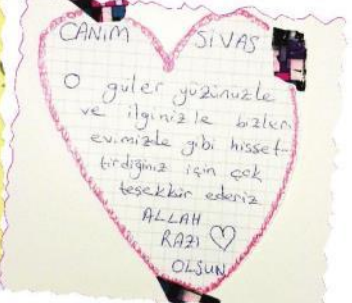 CANIM SİVAS
O güler yüzünüzle
ve ilginizle bizleri
evimizde gibi hisset-
tirdiğiniz için çok
teşekkür ederiz
ALLAH
RAZI
OLSUN